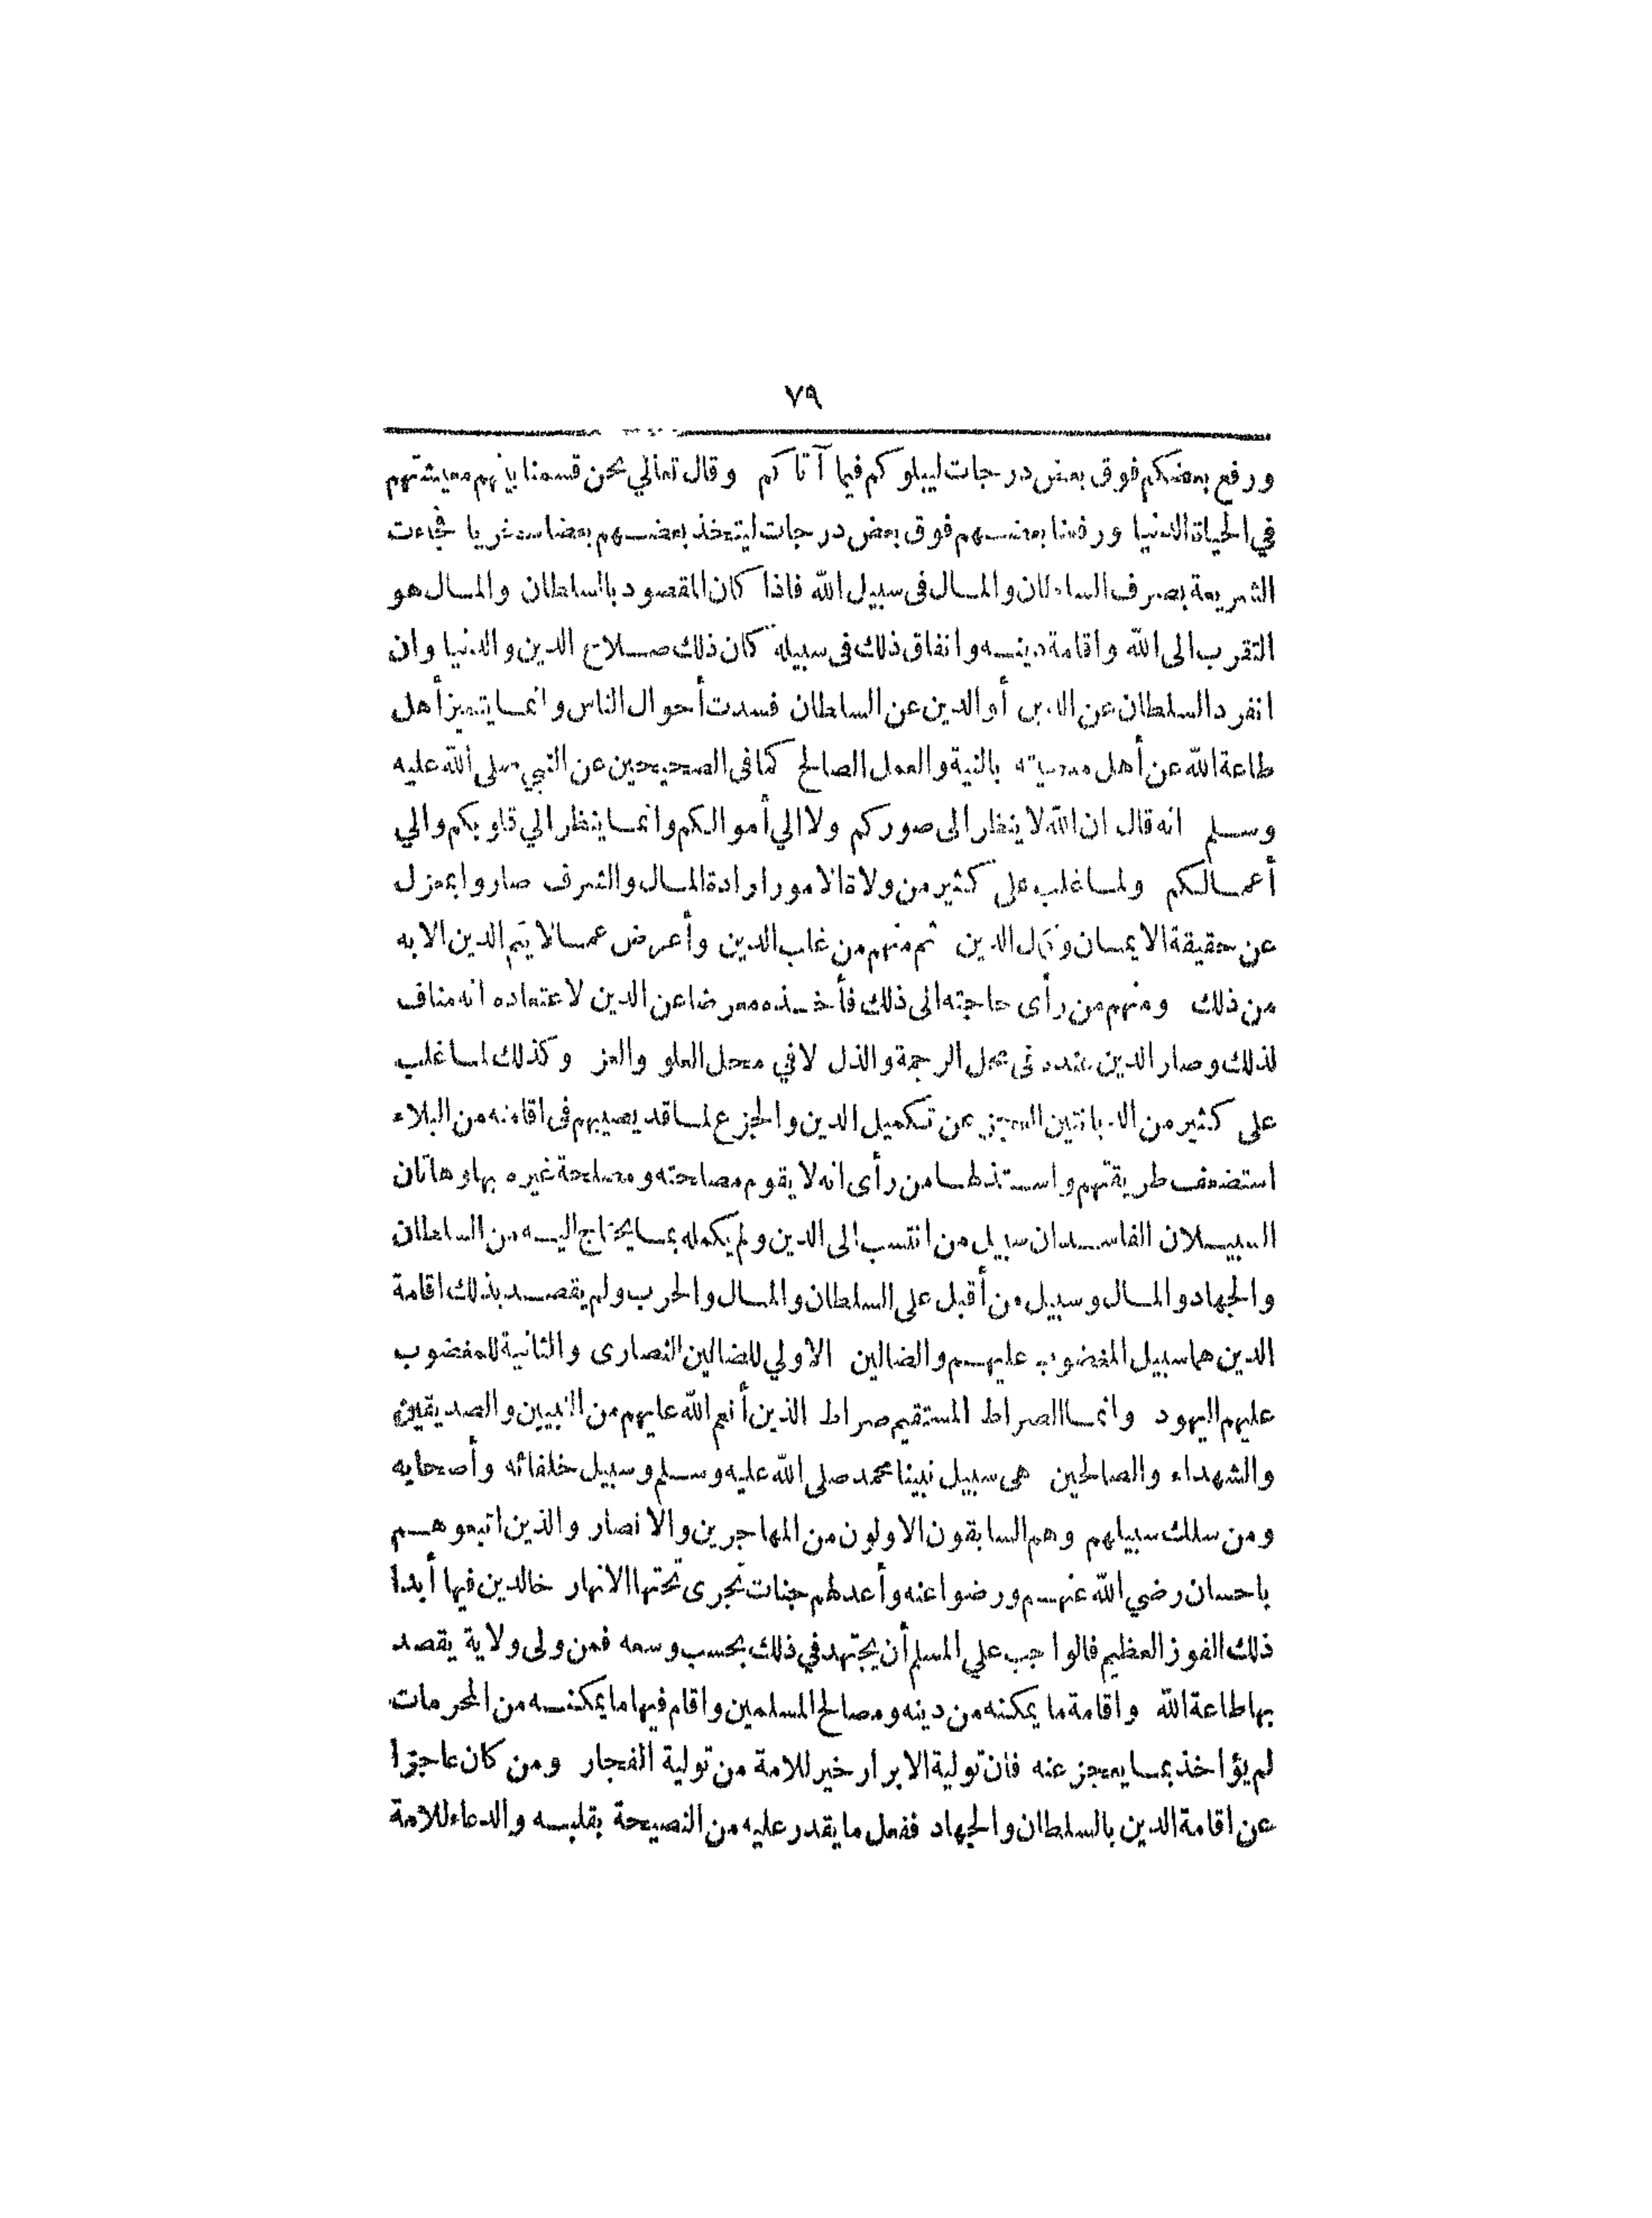 ٧٩
ورفع بعضكم فوق بعض درجات ليبلوكم فيما آتاكم وقال تعالي نحن قسمنا بينهم معيشتهم
في الحياة الدنيا ورفعنا بعضهم فوق بعض درجات ليتخذ بعضهم بعضا سخريا فجاءت
الشريعة بصرف السلطان والمال فى سبيل الله فاذا كان المقصود بالسلطان والمال هو
التقرب الى الله واقامة دينه وانفاق ذلك فى سبيله كان ذلك صلاح الدين والدنيا وان
انفرد السلطان عن الدين أو الدين عن السلطان فسدت أحوال الناس وانما يتميز أهل
طاعة الله عن أهل معصيته بالنية والعمل الصالح كما فى الصحيحين عن النبي صلى الله عليه
وسلم انه قال ان الله لا ينظر الى صوركم ولا الي أموالكم وانما ينظر الي قلوبكم والي
أعمالكم ولما غلب على كثير من ولاة الامور ارادة المال والشرف صاروا بمعزل
عن حقيقة الايمان وكمال الدين ثم منهم من غلب الدين وأعرض عما لا يتم الدين الا به
من ذلك ومنهم من رأى حاجته الى ذلك فأخذه معرضا عن الدين لاعتقاده انه مناف
لذلك وصار الدين عنده فى محل الرحمة والذل لا في محل العلو والعز وكذلك لما غلب
على كثير من الديانتين العجز عن تكميل الدين والجزع لما قد يصيبهم فى اقامته من البلاء
استضعف طريقتهم واستذلها من رأى انه لا يقوم مصلحته ومصلحة غيره بها وهاتان
السبيلان الفاسدان سبيل من انتسب الى الدين ولم يكمله بما يحتاج اليه من السلطان
والجهاد والمال وسبيل من أقبل على السلطان والمال والحرب ولم يقصد بذلك اقامة
الدين هما سبيل المغضوب عليهم والضالين الاولي للضالين النصارى والثانية للمغضوب
عليهم اليهود وانما الصراط المستقيم صراط الذين أنعم الله عليهم من النبيين والصديقين
والشهداء والصالحين هى سبيل نبينا محمد صلى الله عليه وسلم وسبيل خلفائه وأصحابه
ومن سلك سبيلهم وهم السابقون الاولون من المهاجرين والانصار والذين اتبعوهم
باحسان رضي الله عنهم ورضوا عنه وأعد لهم جنات تجرى تحتها الانهار خالدين فيها أبدا
ذلك الفوز العظيم فالواجب علي المسلم أن يجتهد في ذلك بحسب وسعه فمن ولى ولاية يقصد
بها طاعة الله واقامة ما يمكنه من دينه ومصالح المسلمين واقام فيها ما يمكنه من المحرمات
لم يؤاخذ بما يعجز عنه فان تولية الابرار خير للامة من تولية الفجار ومن كان عاجزا
عن اقامة الدين بالسلطان والجهاد ففعل ما يقدر عليه من النصيحة بقلبه والدعاء للامة